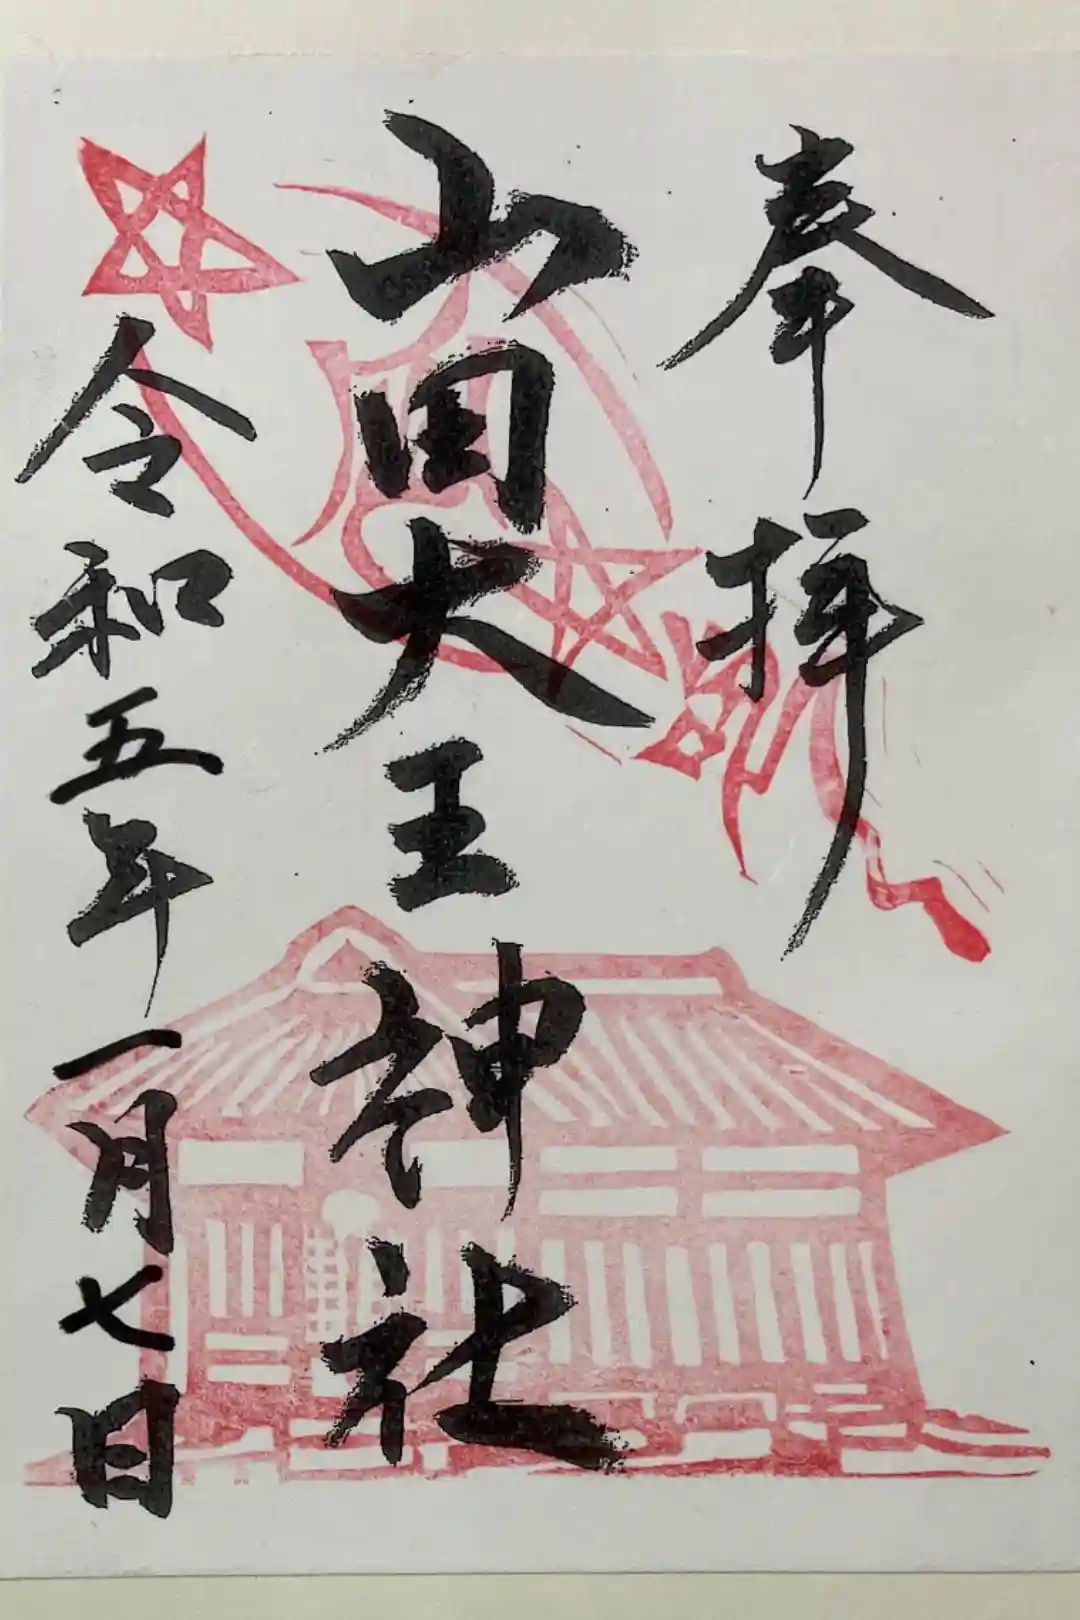 奉拝
山田大王神社
令和五年一月七日